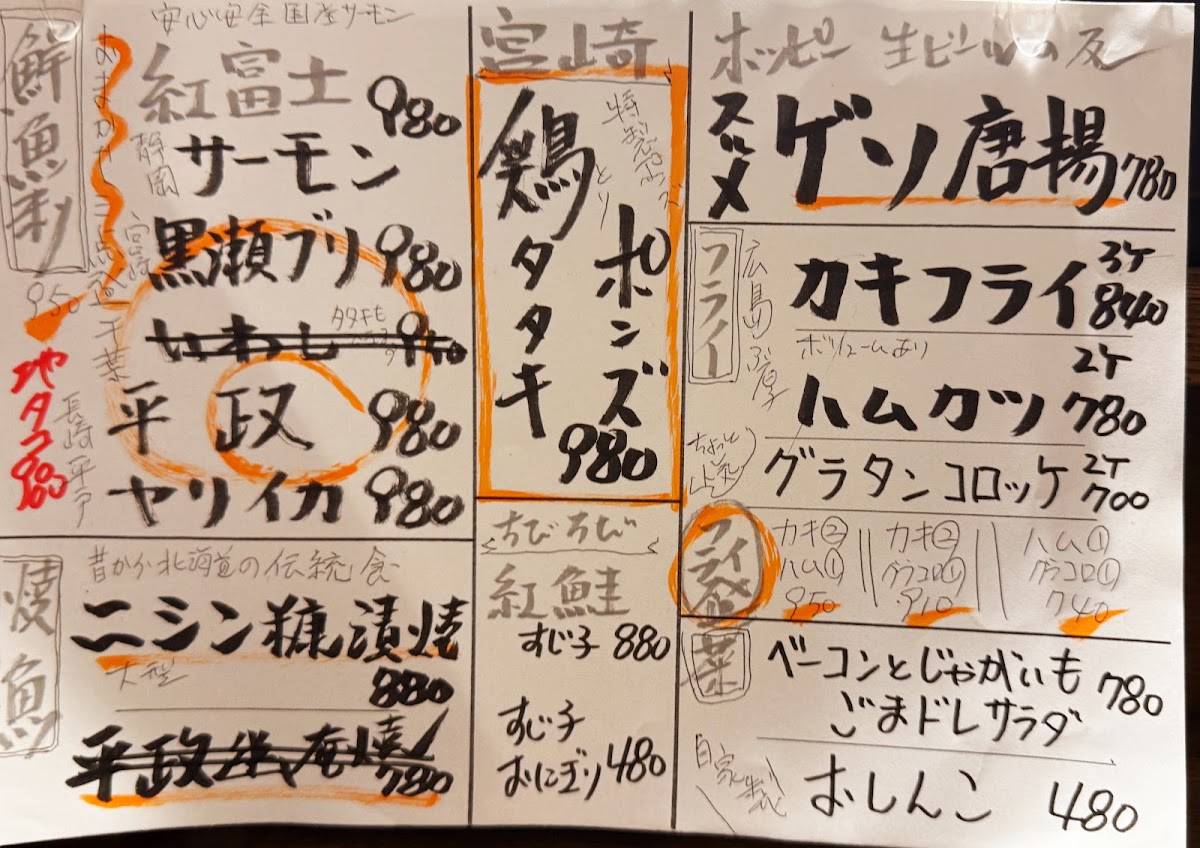 鮮魚刺
おまかせ三点盛
950
地タコ
900
安心安全国産サーモン
紅富士
静岡
サーモン
980
宮崎
黒瀬ブリ 980
いわし
タタキも
千葉
平政 980
長崎 平戸
ヤリイカ 980
焼魚
昔から北海道の伝統食
ニシン糠漬焼
大型
880
平政幽庵焼
780
宮崎
特製
鶏タタキ
とり
ポンズ
980
ちびちび
紅鮭
すじ子 880
すじ子
おにぎり 480
ホッピー 生ビールの友
スルメ
ゲソ唐揚 780
フライ
広島
カキフライ
3ケ
840
ボリュームあり
ぶ厚
ハムカツ
2ケ
780
ちょっと
グラタンコロッケ
2ケ
700
フライ
カキ②
ハム①
950
カキ②
グラコロ①
910
ハム①
グラコロ①
740
菜
ベーコンとじゃがいも
ごまドレサラダ
780
自家製
おしんこ 480